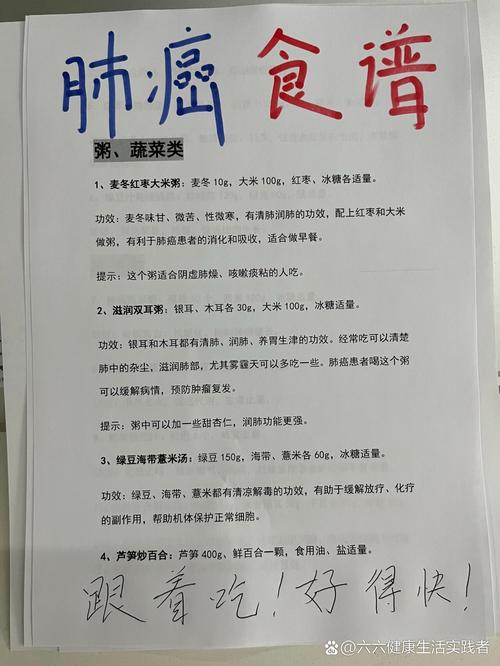 肺癌食谱
粥、蔬菜类
1、麦冬红枣大米粥：麦冬 10g，大米 100g，红枣、冰糖各适量。
功效：麦冬味甘、微苦、性微寒，有清肺润肺的功效，配上红枣和大米
做粥，有利于肺癌患者的消化和吸收，适合做早餐。
提示：这个粥适合阴虚肺燥、咳嗽痰粘的人吃。
2、滋润双耳粥：银耳、木耳各 30g，大米 100g，冰糖适量。
功效：银耳和木耳都有清肺、润肺、养胃生津的功效。经常吃可以清楚
肺中的杂尘，滋润肺部，尤其雾霾天可以多吃一些。肺癌患者喝这个粥
可以缓解病情，预防肿瘤复发。
提示：粥中可以加一些甜杏仁，润肺功能更强。
3、绿豆海带薏米汤：绿豆 150g，海带、薏米各 60g，冰糖适量。
功效：绿豆、海带、薏米都有清凉解毒的功效，有助于缓解放疗、化疗
的副作用，帮助机体保护正常细胞。
4、芦笋炒百合：芦笋 400g、鲜百合一颗，食用油、盐适量。
跟着吃！好得快！
@六六健康生活实践者